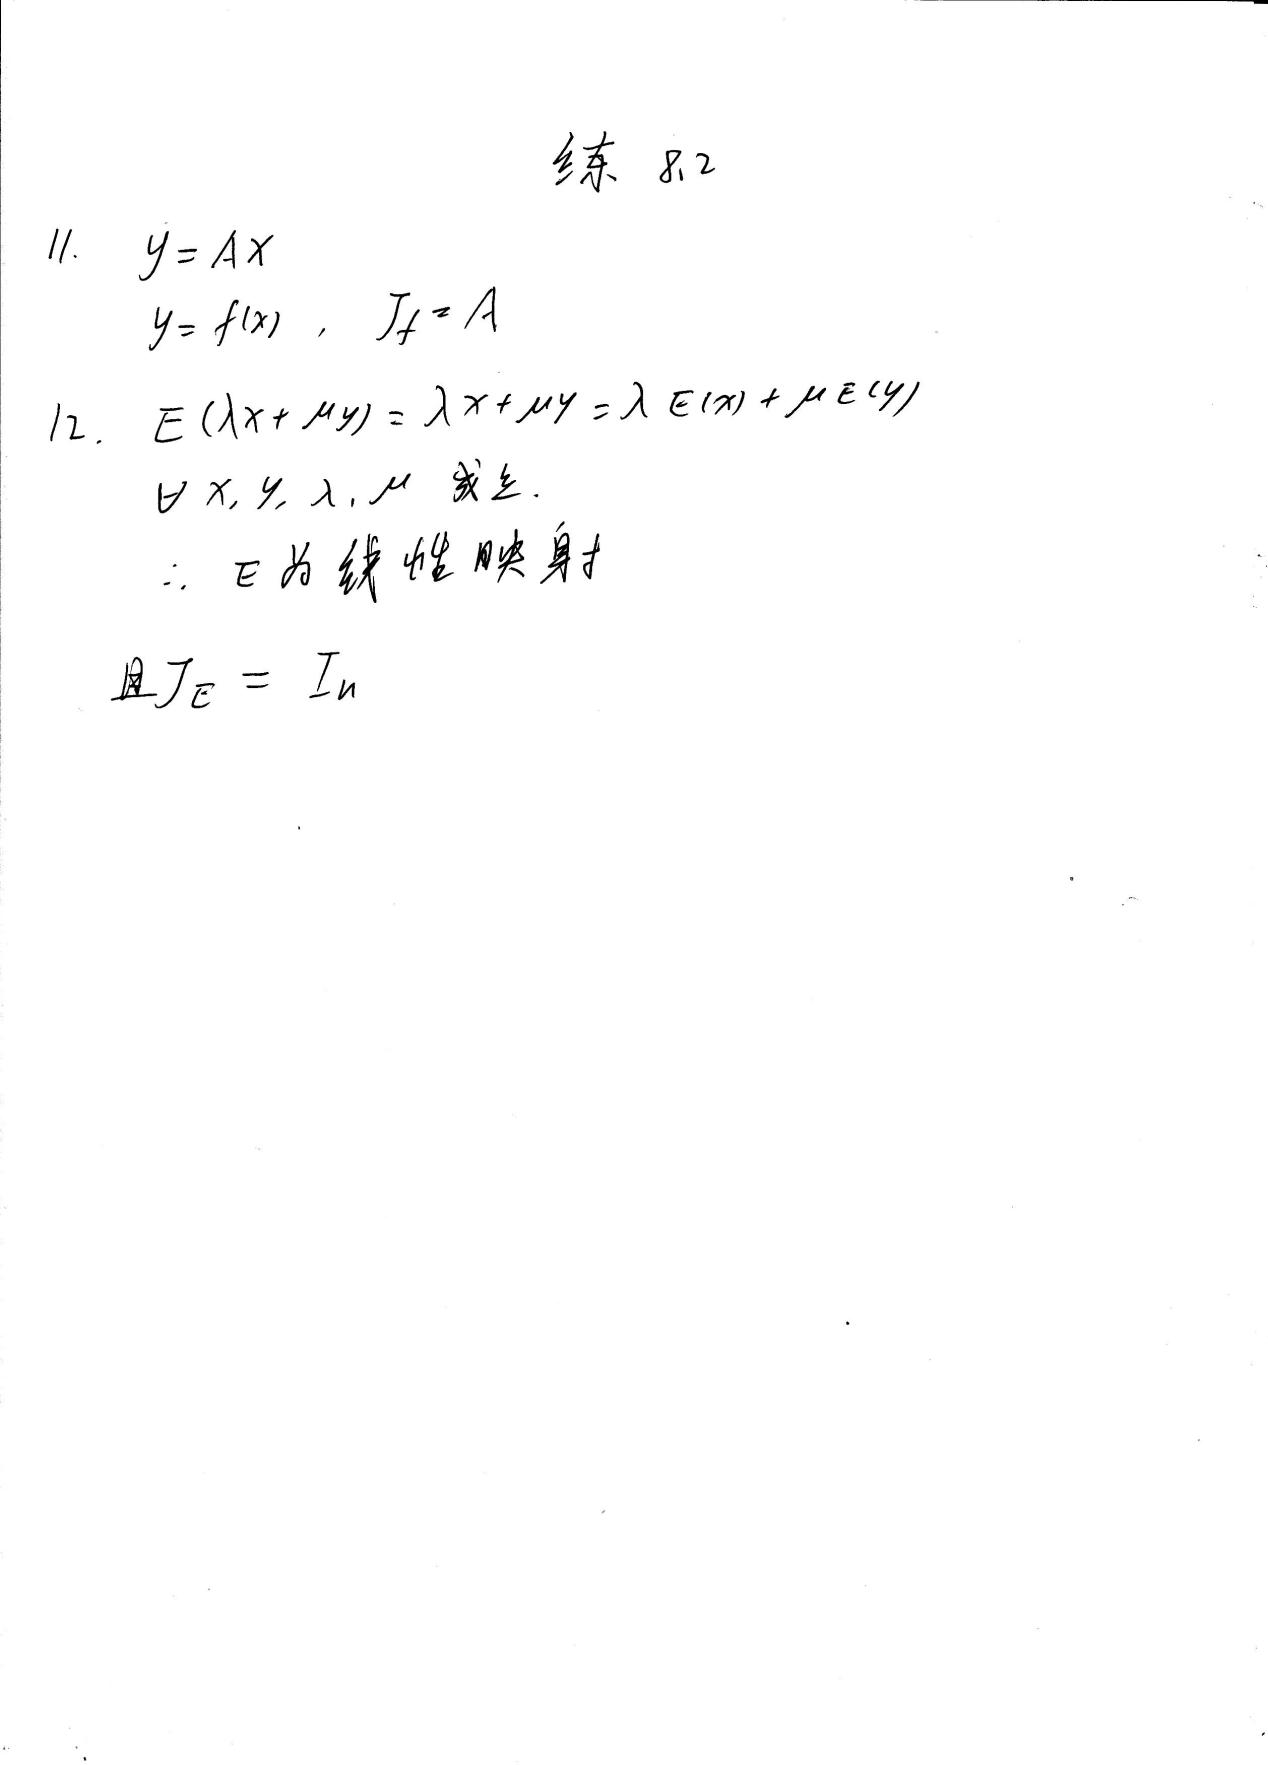 练 8.2
11. y = AX
y = f(x), J_f = A
12. E(λx + μy) = λx + μy = λE(x) + μE(y)
∀ x, y, λ, μ 成立.
∴ E为线性映射
且J_E = I_n